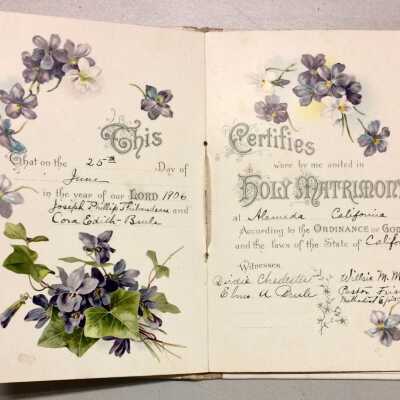 This
That on the 25th Day of
June
in the year of our LORD 1906
Joseph Phillip and
Cora Edith
Certifies
were by me united in
HOLY MATRIMONY
at Alameda California
According to the ORDINANCE of GOD
and the laws of the State of Calif
Witnesses.
Birdie
Elmo A
Willis M. M
Pastor
Methodist